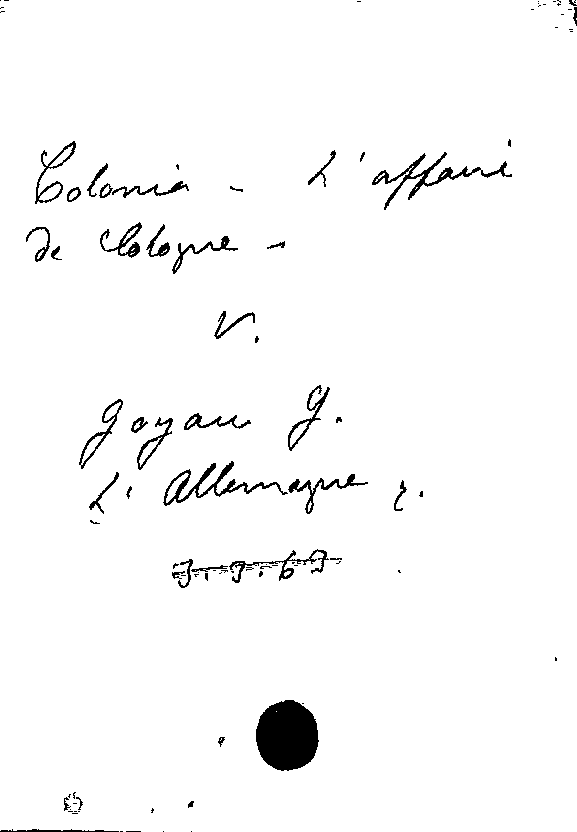 Colonia - L'affaire
de Cologne -
V.
Goyau G.
L'Allemagne r.
J. J. 69